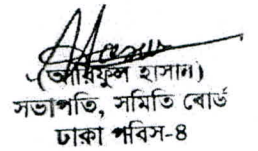 (আরিফুল হাসান)
সভাপতি, সমিতি বোর্ড
ঢাকা পবিস-৪